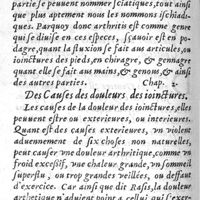 partie se peuuent nommer Sciatiques, tout ainsi
que plus aptement nous les nommons ischiadi-
ques. Parquoy donc arthritis est comme genre
qui se diuise en ces especes, sçauoir est en po-
dagre, quant la fluxion se fait aux articules, ou
ioinctures des pieds, en chiragre, & gonnagre
quant elle se fait aux mains, & genous, & ainsi
des autres parties. Chap.
Des Causes des douleurs des ioinctures.
Les causes de la douleur des ioinctures, elles
peuuent estre ou exterieures, ou interieures.
Quant est des causes exterieures, vn violent
aduenement de six choses non naturelles,
peut causer vne douleur arthritique, comme vn
froid excessif, vne chaleur grande, vn sommeil
superflu, ou trop grandes veillées, ou deffaut
d'exercice. Car ainsi que dit Rasis, la douleur
arthetique n'aduient point a celluy qui s'exer-